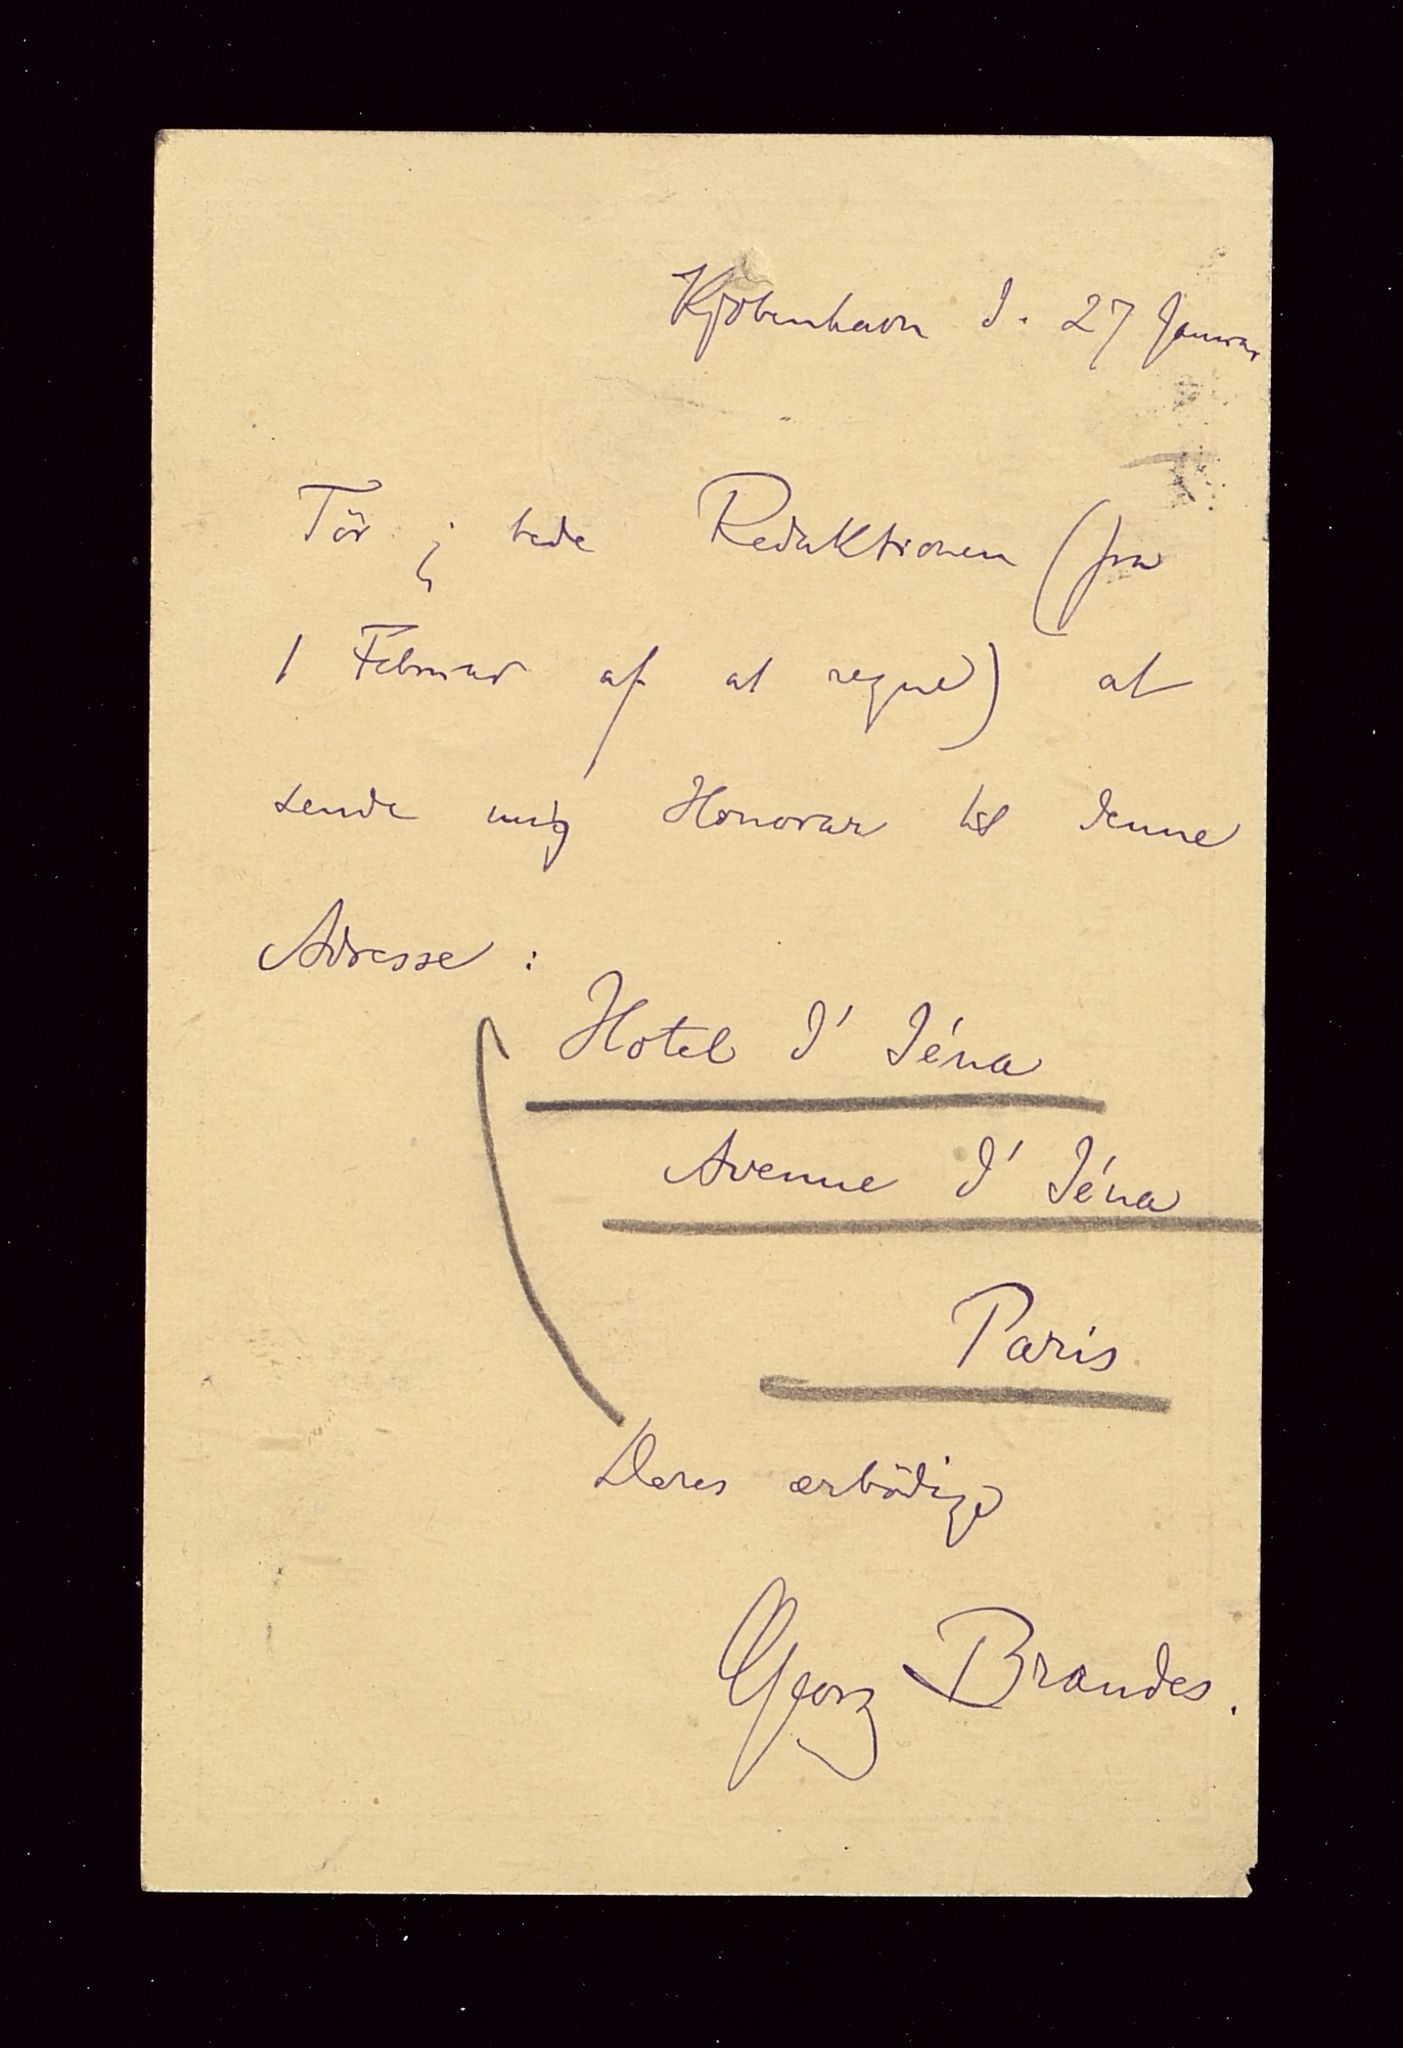 Kjöbenhavn d. 27 Januar
Tör jeg bede Redaktionen (fra
1 Februar af at regne) at
sende mig Honorar til denne
Adresse:
Hotel d'Iéna
Avenue d'Iéna
Paris
Deres ærbödige
Georg Brandes.